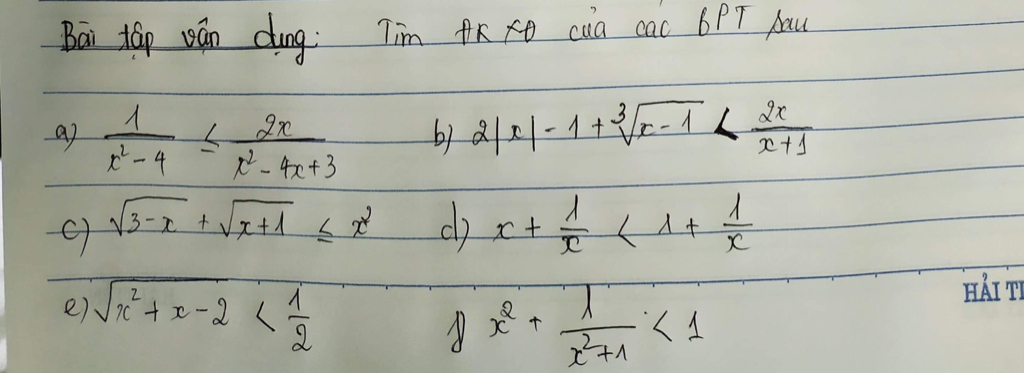 Bài tập vận dụng: Tìm ĐKXĐ của các BPT sau
a) 1/(x² - 4) ≤ 2x/(x² - 4x + 3) b) 2|x| - 1 + ³√(x - 1) < 2x/(x + 1)
c) √(3 - x) + √(x + 1) ≤ x² d) x + 1/x < 1 + 1/x
HẢI TI
e) √(x² + x - 2) < 1/2 f) x² + 1/(x² + 1) < 1